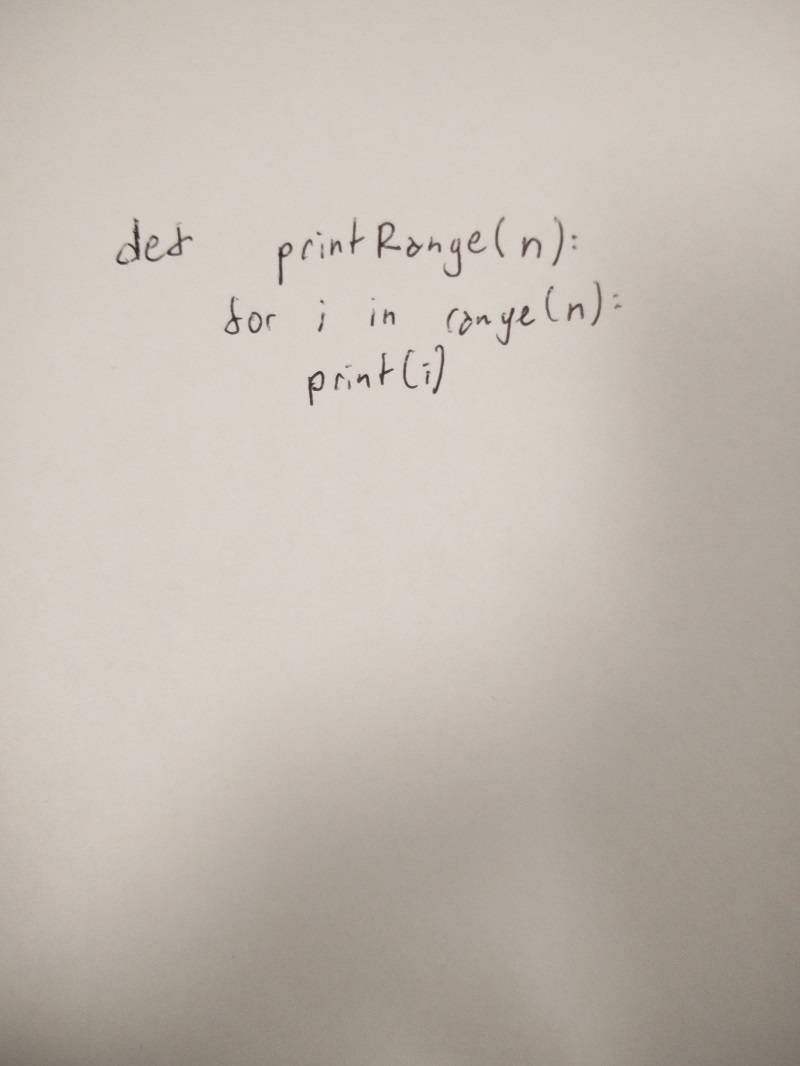 def printRange(n):
for i in range(n):
print(i)